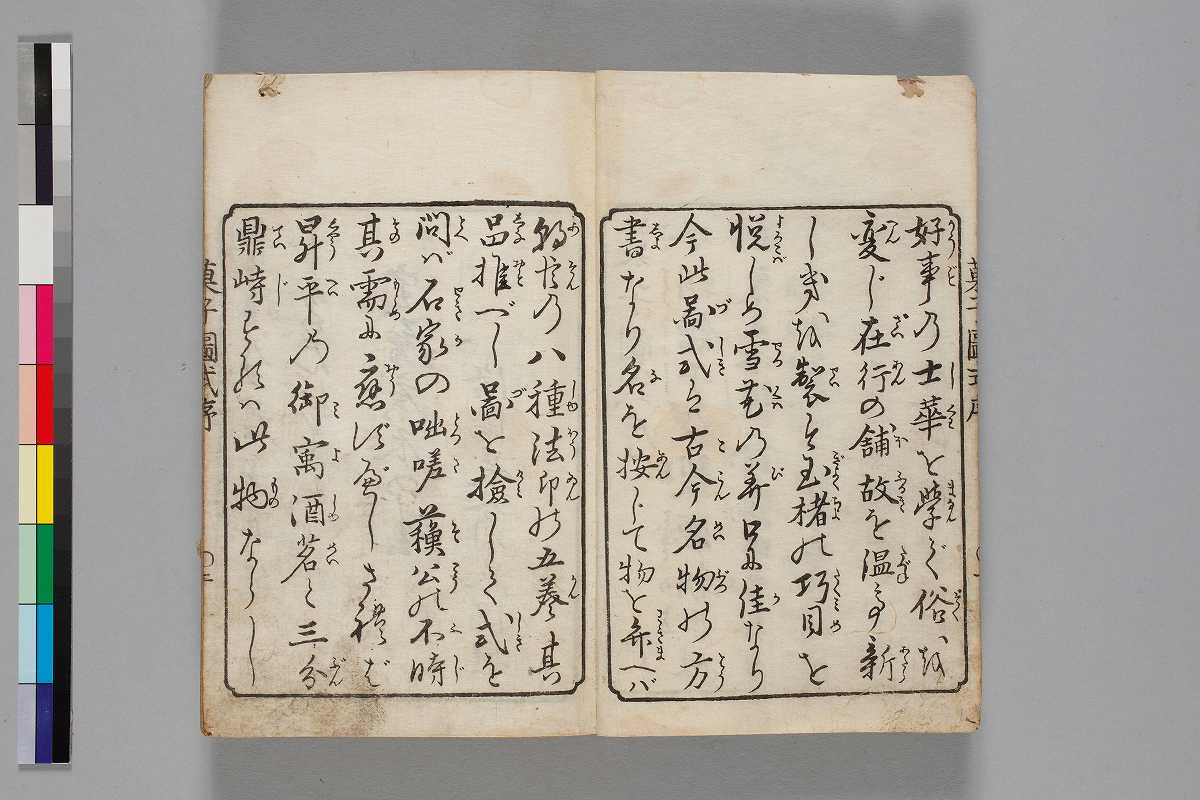 好事の士華を学び俗を
変じ在行の舗故を温て新
しきを製す玉楮の巧目を
悦しめ雪花の美口に佳なり
今此啚式は古今名物の方
書なり名を按じて物を弁へバ
の八種法印の五菓其
品推べし啚を撿して式を
問バ石家の咄嗟蘓公の不時
其需に応ずべしされば
昇平の御寓酒茗と三分
鼎峙するハ此物ならし
菓子圖式序
菓子圖式序